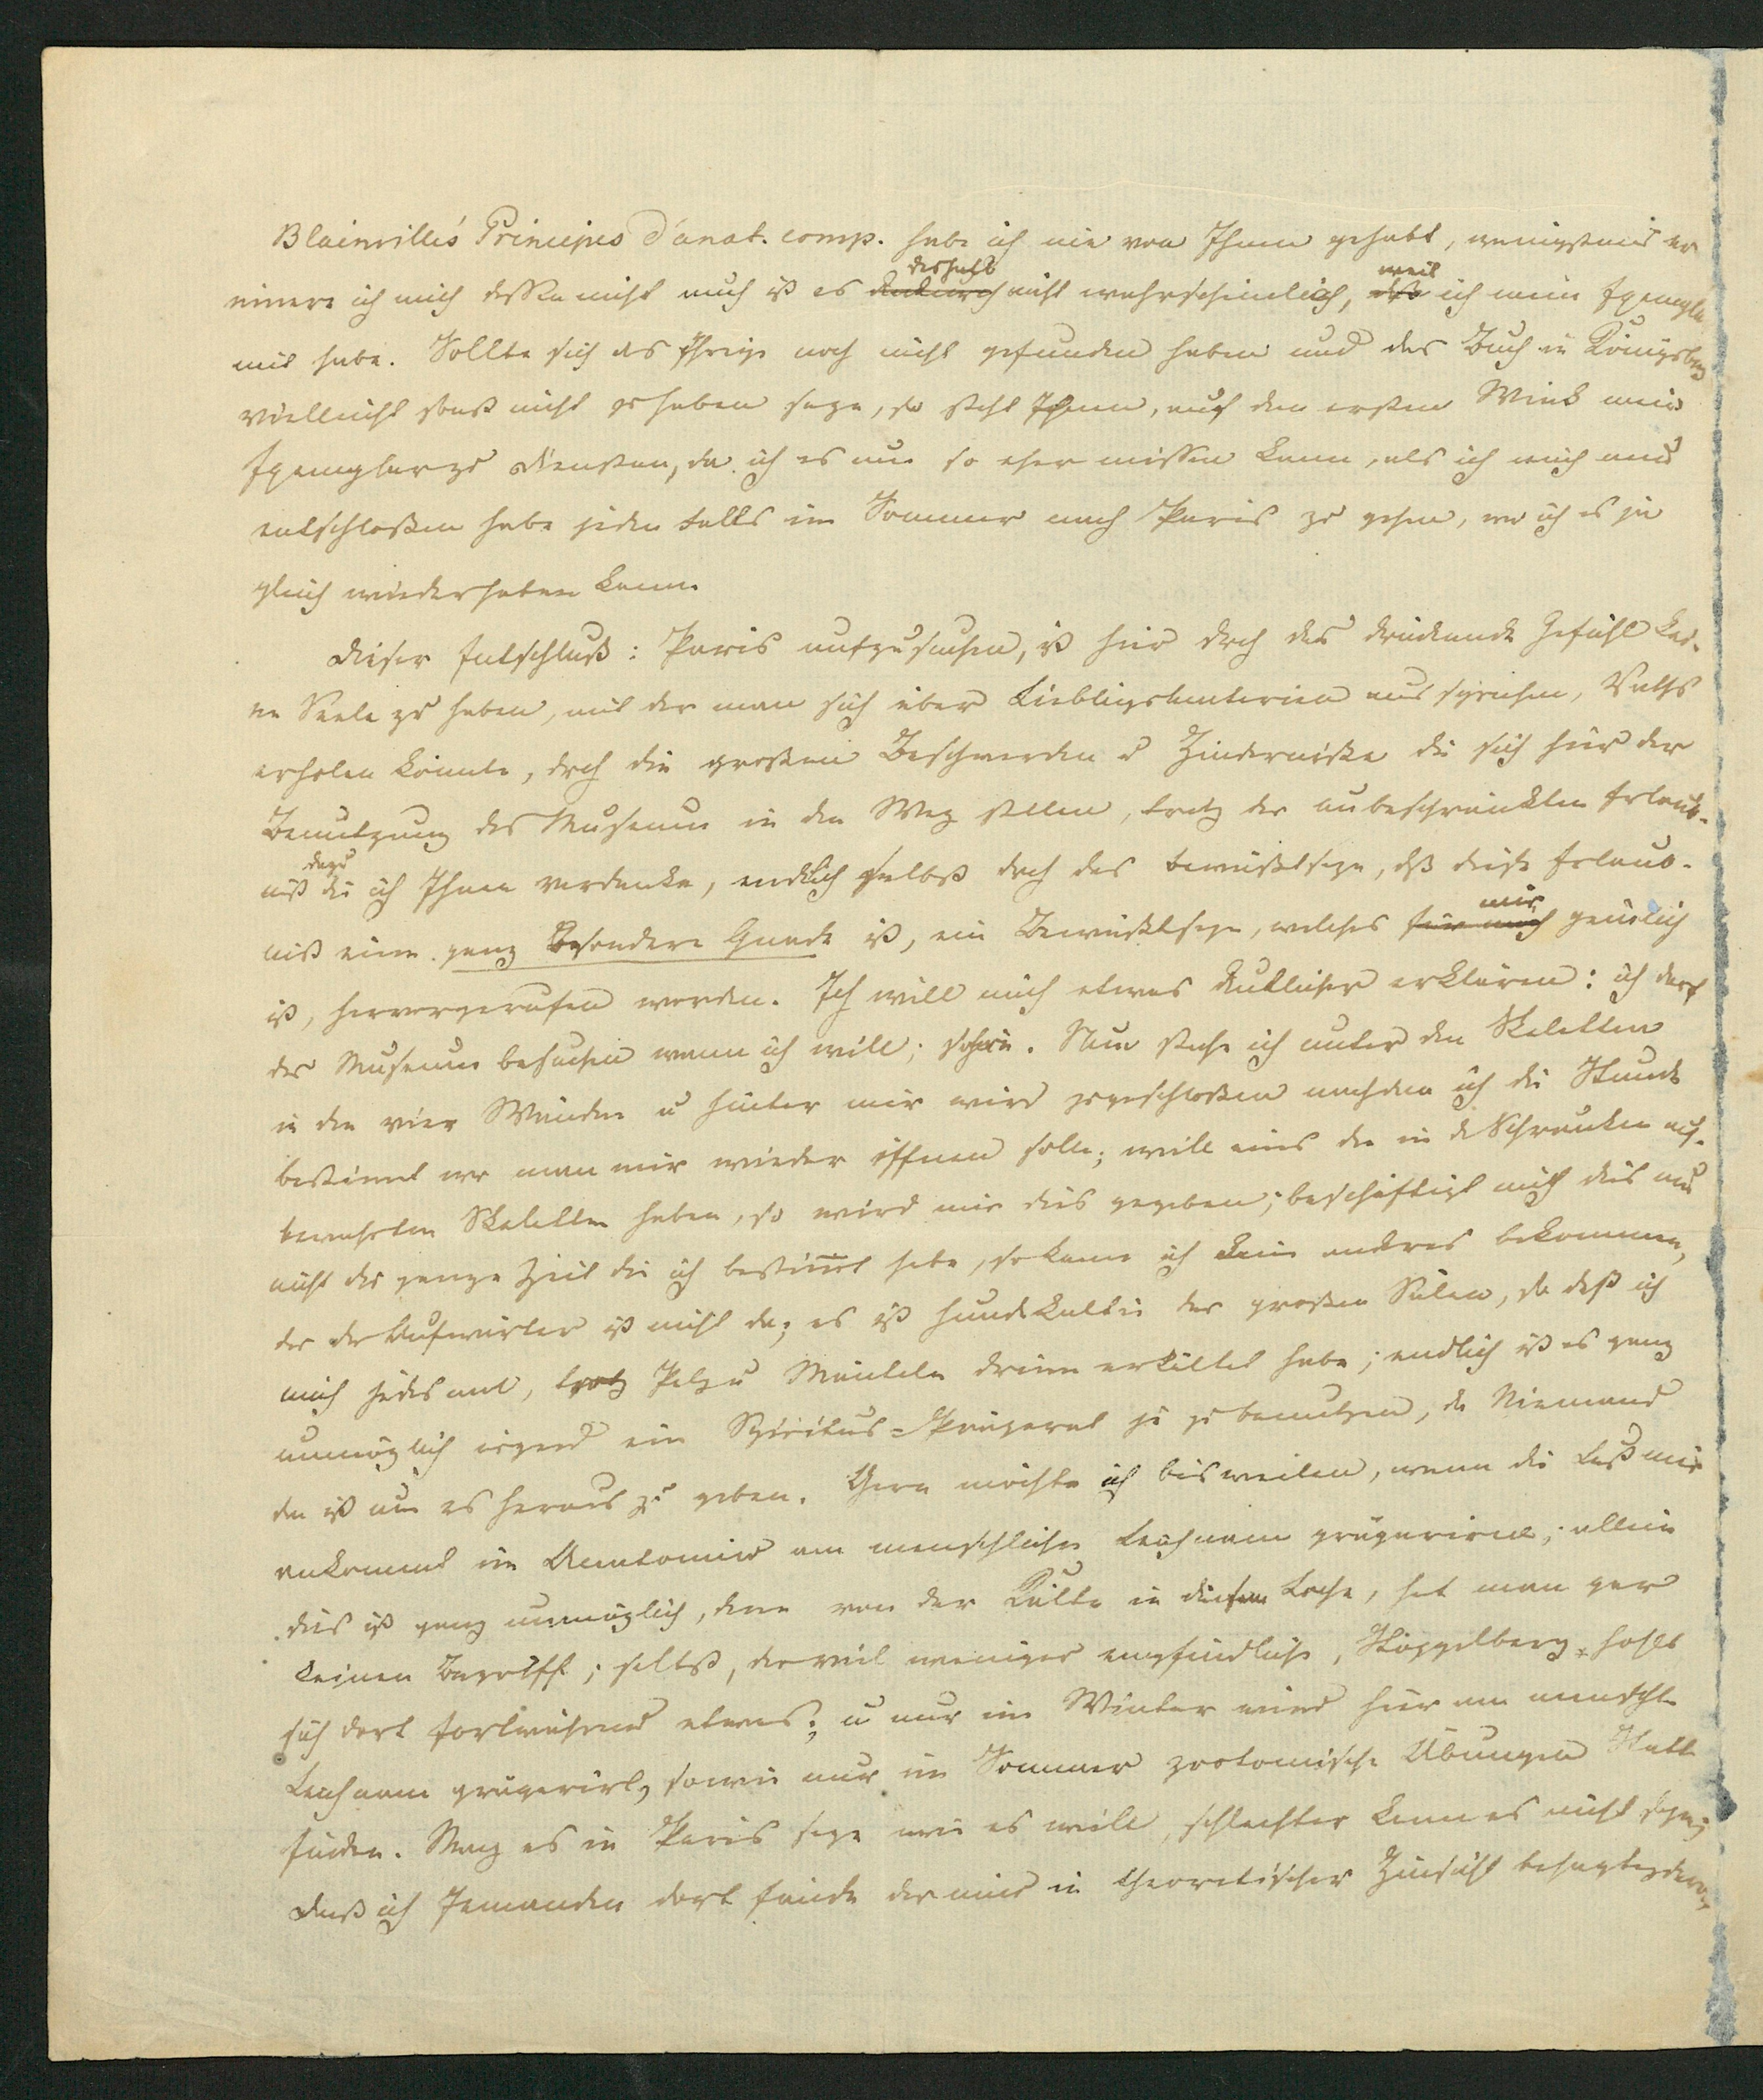 Blainville's Principes d'anat. comp. habe ich nie von Ihnen gehabt, wenigstens er
innere ich mich dessen nicht auch ist es dadurch deshalb nicht wahrscheinlich, daß weil ich mein Exemplar
mit habe. Sollte sich das Ihrige noch nicht gefunden haben und das Buch in Königsberg
vielleicht sonst nicht zu haben seyn, so steht Ihnen, auf den ersten Wink mein
Exemplar zu Diensten, da ich es um so eher missen kann, als ich mich nun
entschloßen habe jeden Falls im Sommer nach Paris zu gehen, wo ich es ja
gleich wiederhaben kann.
Dieser Entschluß: Paris aufzusuchen, ist hier durch das drückende Gefühl kei-
ne Seele zu haben, mit der man sich über Lieblingsmaterien aussprechen, Raths
erholen könnte, durch die großen Beschwerden u Hinderniße die sich hier der
Benutzung des Museums in den Weg stellen, trotz der unbeschränkten Erlaub-
niß dazu die ich Ihnen verdanke, endlich selbst durch das bewußtseyn, daß diese Erlaub-
niß eine ganz besondere Gnade ist, ein Bewußtseyn, welches für mich mir peinlich
ist, hervorgerufen worden. Ich will mich etwas deutlicher erklären: ich darf
das Museum besuchen wann ich will; schön. Nun stehe ich unter den Skeletten
in den vier Wänden u hinter mir wird zugeschloßen nachdem ich die Stunde
bestimmt wo man mir wieder öffnen solle; will eins der in d Schränken auf-
bewahrten Skelette haben, so wird mir dies gegeben; beschäftigt mich dies nun
nicht die ganze Zeit die ich bestimmt habe, so kann ich kein anderes bekommen,
da der Aufwärter ist nicht da; es ist hundekalt in den großen Sälen, so daß ich
mich jedes mal, trotz Pelz u Mänteln drinn erkältet habe; endlich ist es ganz
unmöglich irgend ein Spiritus-Präparat je zu benutzen, da Niemand
da ist um es heraus zu geben. Gern möchte ich bisweilen, wenn die Lust mir
ankommt im Anatomie am menschlichen Leichnam präpariren; allein
dies ist ganz unmöglich, denn von der Kälte in diesem Loche, hat man gar
keinen Begriff; selbst, der viel weniger empfindliche, Stöppelberg holt
sich dort fortwährend etwas; u nur im Winter wird hier am menschl.
Leichnam präparirt, sowie nur im Sommer zootomische Übungen Statt
finden. Mag es in Paris seyn wie es will, schlechter kann es nicht seyn;
daß ich Jemanden dort finde der mir in theoretischer Hinsicht